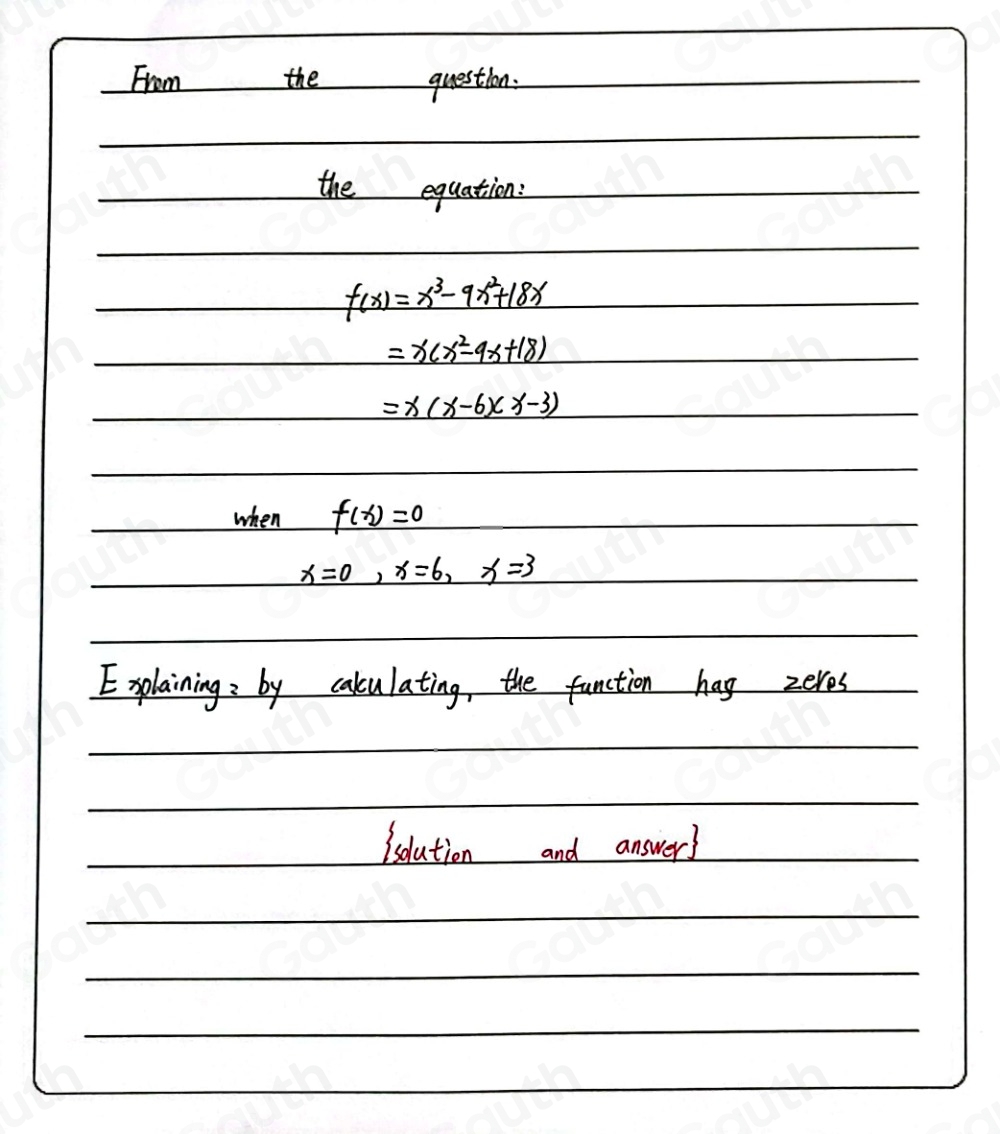 From the question:
the equation:
f(x) = x³ - 9x² + 18x
= x(x² - 9x + 18)
= x(x - 6)(x - 3)
when f(x) = 0
x = 0 , x = 6, x = 3
Explaining: by calculating, the function has zeros
{solution and answer}
Gauth